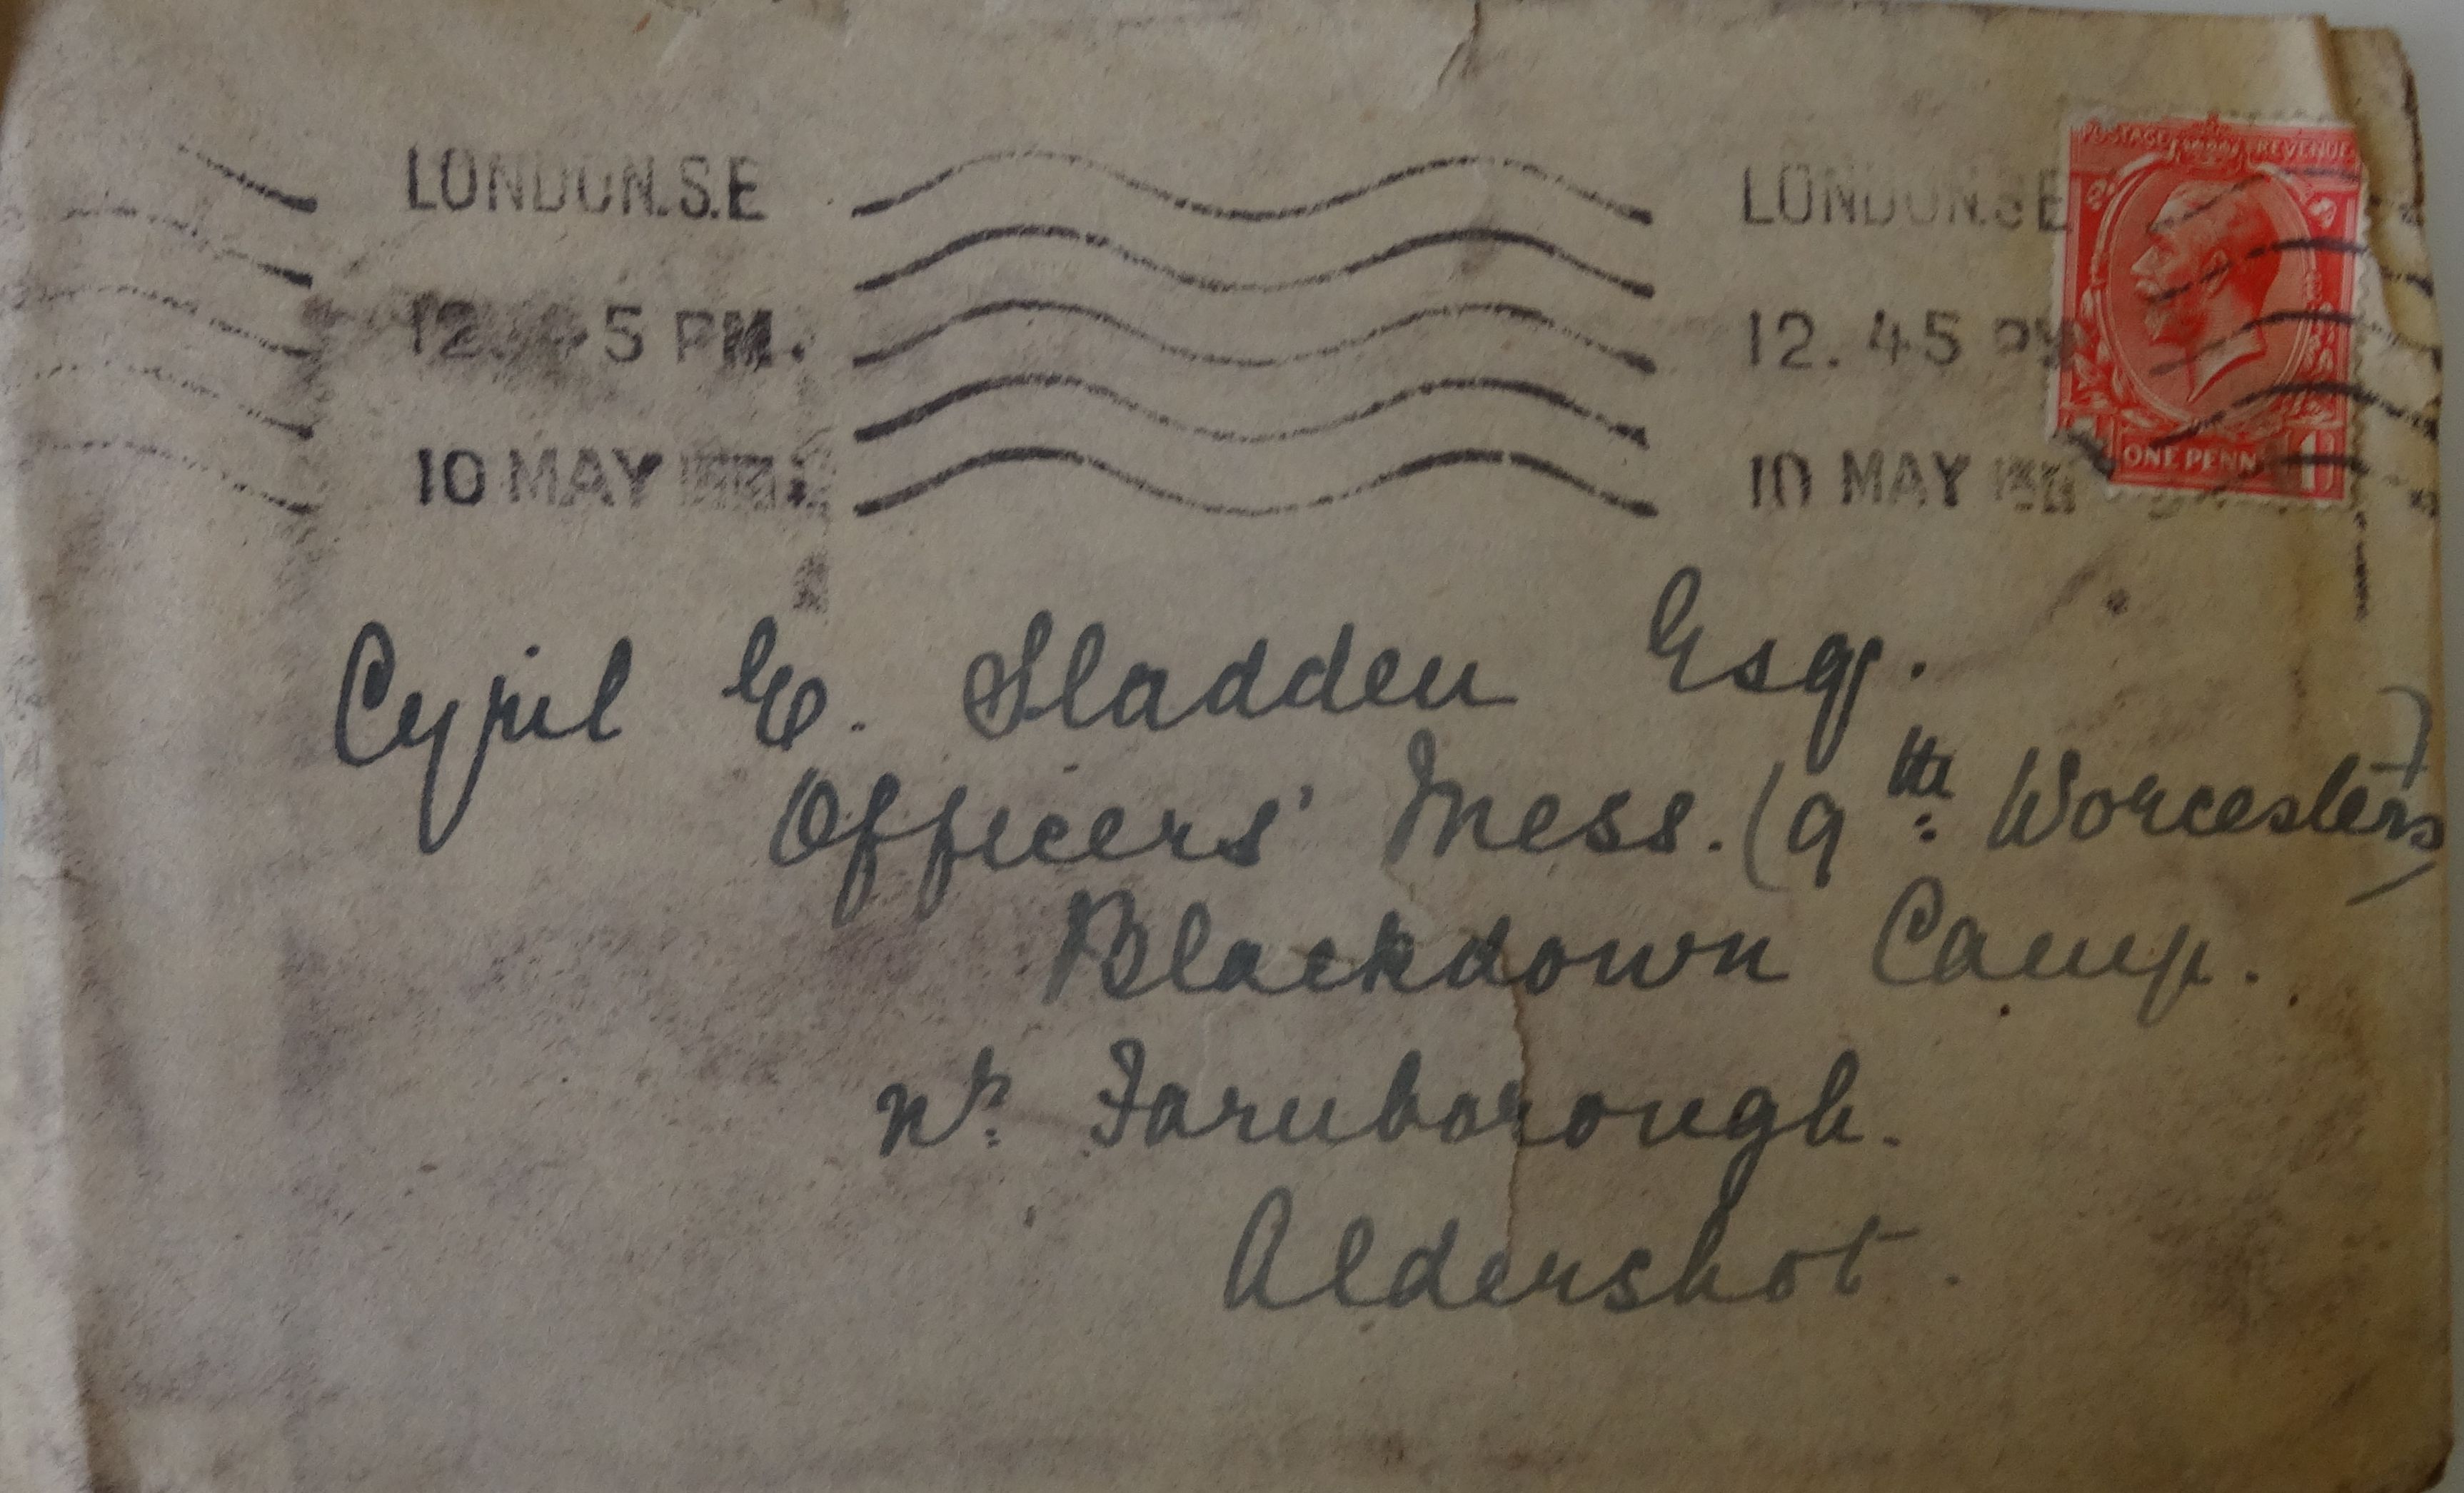 LONDON.S.E LONDON.S.E
12.45 PM. 12.45 PM
10 MAY 10 MAY
POSTAGE REVENUE
ONE PENNY 1D
Cyril E. Sladden Esq.
Officers' Mess. (9th Worcesters)
Blackdown Camp.
Nr. Farnborough.
Aldershot.